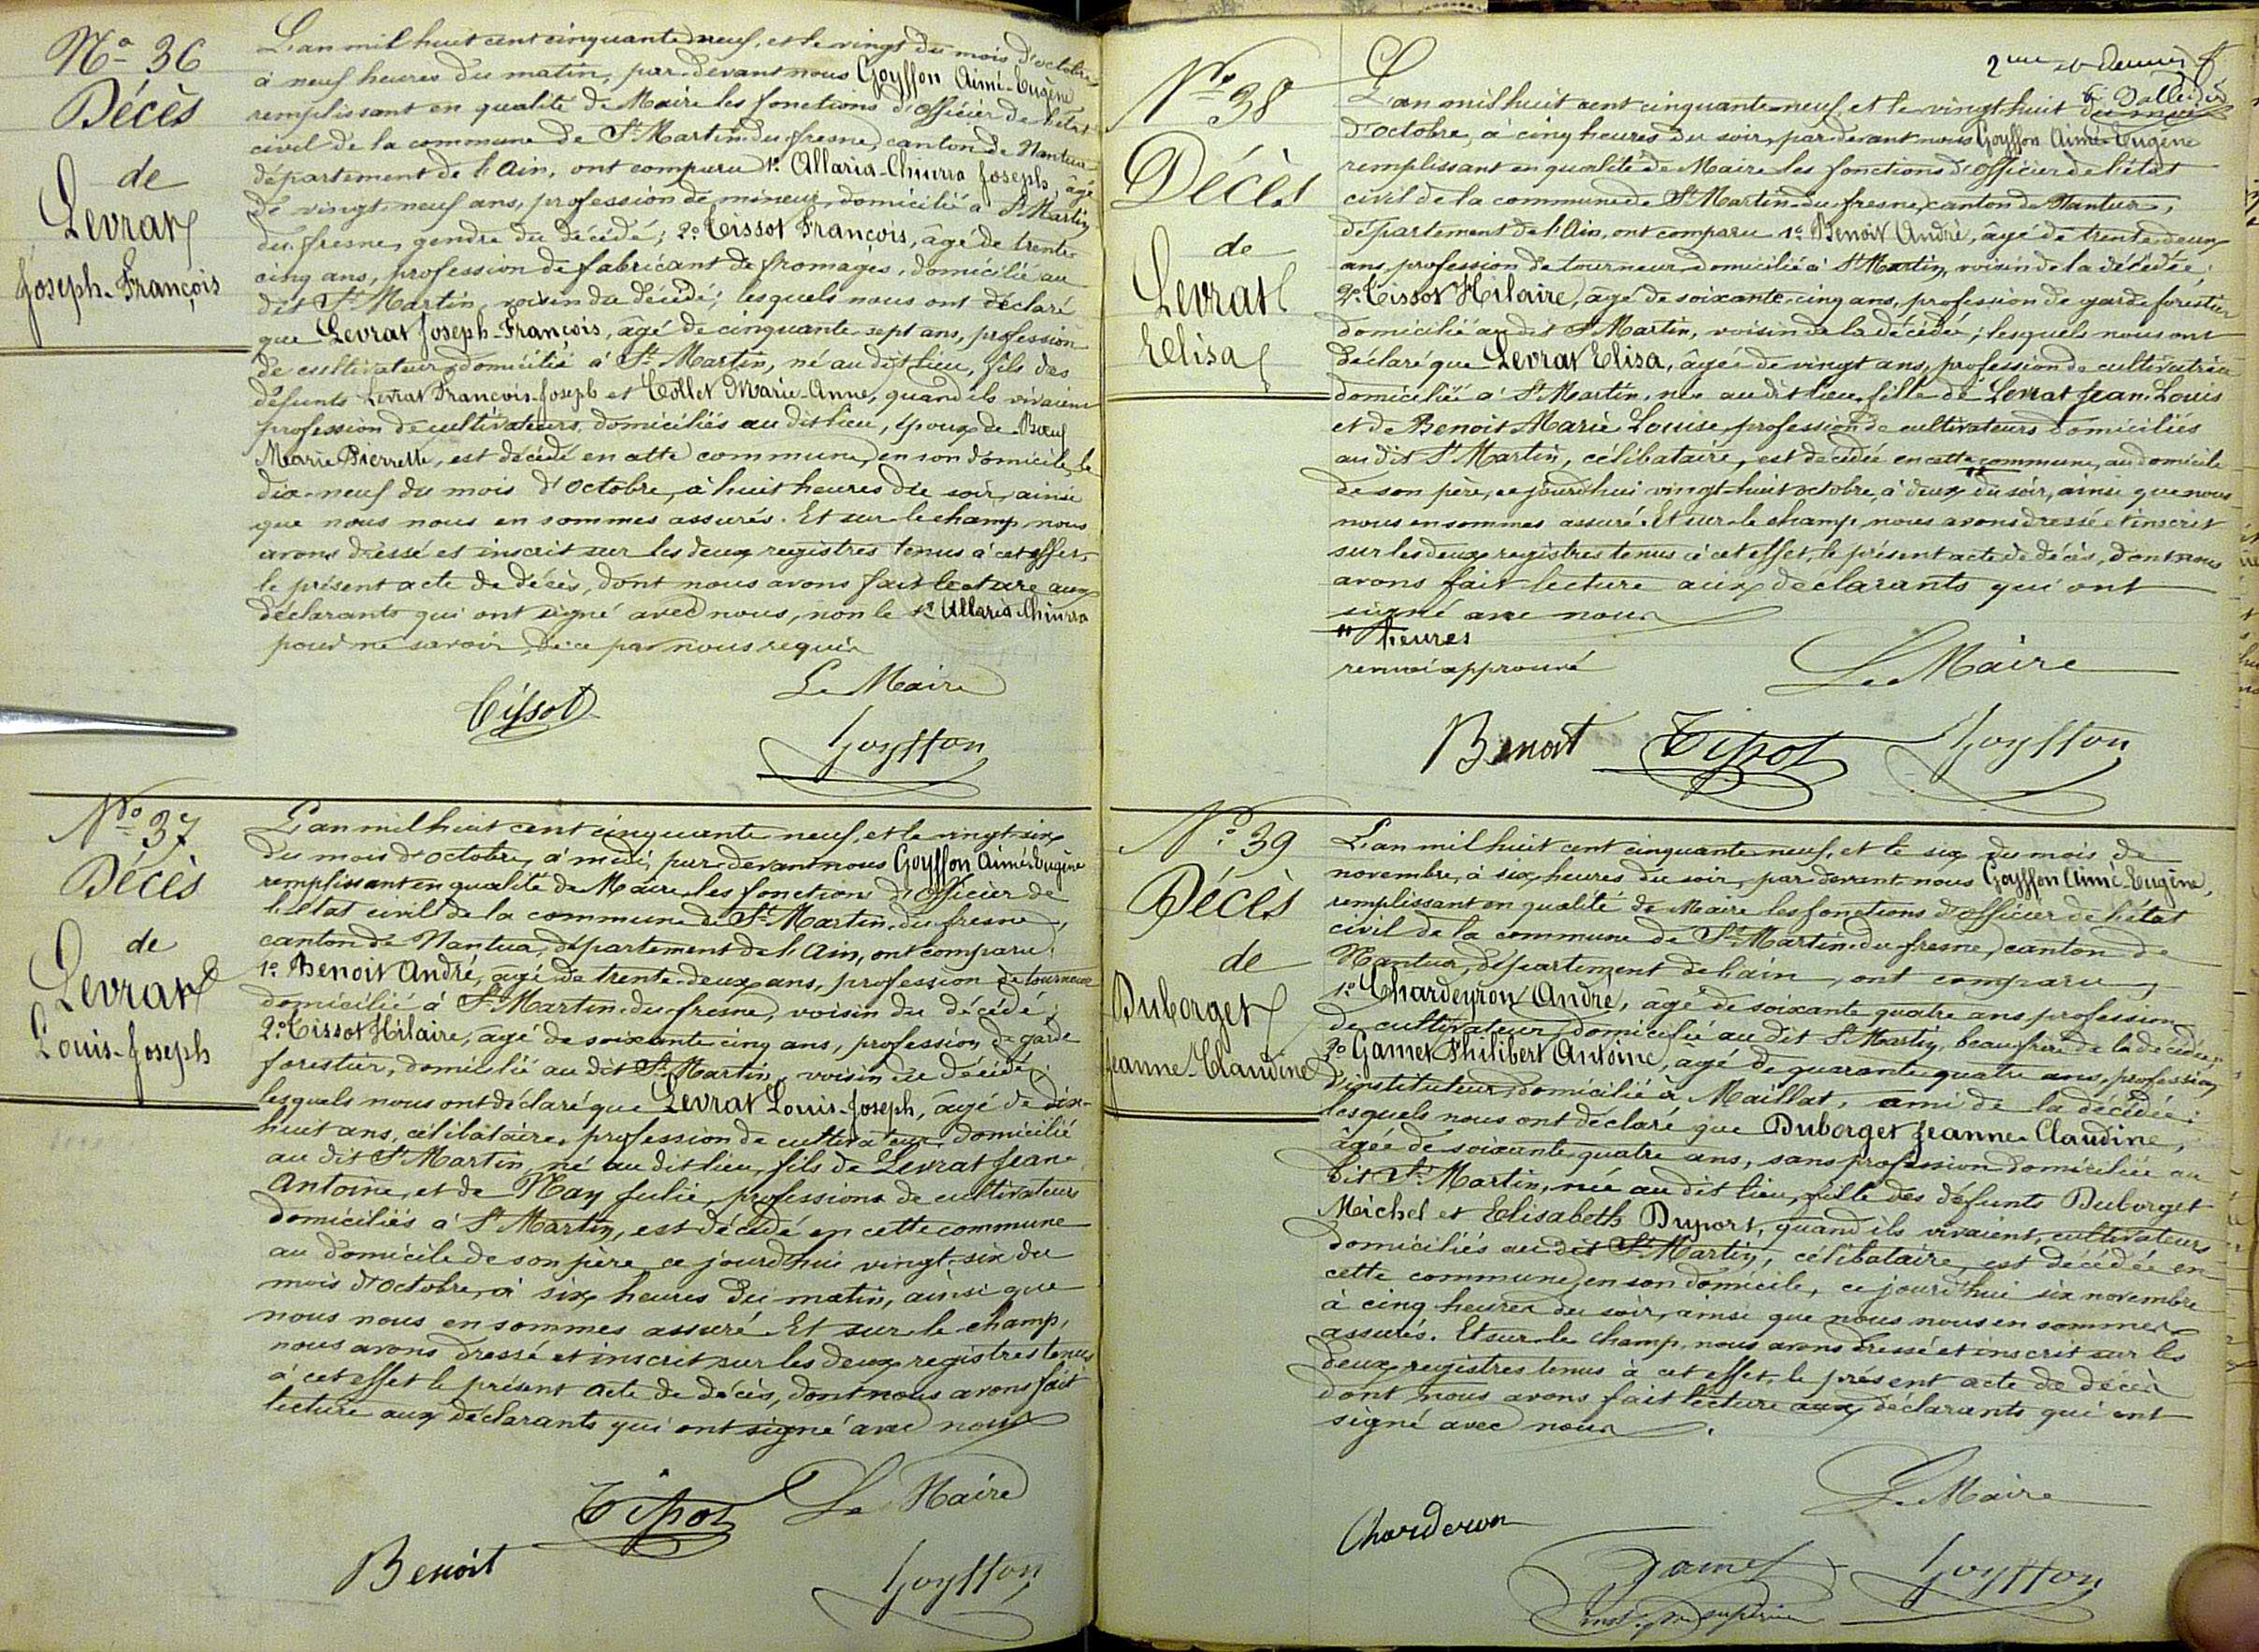 No 36
Décès
de
Levrat
Joseph-François
L'an mil huit cent cinquante neuf, et le vingt du mois d'octobre
à neuf heures du matin, par devant nous Goyffon Aimé-Eugène
remplissant en qualité de Maire les fonctions d'officier de l'état
civil de la commune de St Martin-du-fresne, canton de Nantua
département de l'Ain, ont comparu 1º Allaria-Chiurra Joseph, âgé
de vingt-neuf ans, profession de mineur, domicilié à St Martin
du fresne, gendre du décédé; 2º Tissot François, âgé de trente-
cinq ans, profession de fabricant de fromages, domicilié au
dit St Martin, voisin du décédé; lesquels nous ont déclaré
que Levrat Joseph-François, âgé de cinquante sept ans, profession
de cultivateur, domicilié à St Martin, né au dit lieu, fils des
défunts Levrat François-Joseph et Collet Marie-Anne, quand ils vivaient
profession de cultivateurs, domiciliés au dit lieu, époux de Bœuf
Marie Pierrette, est décédé en cette commune, en son domicile, le
dix-neuf du mois d'octobre, à huit heures du soir, ainsi
que nous nous en sommes assurés. Et sur le champ nous
avons dressé et inscrit sur les deux registres tenus à cet effet,
le présent acte de décès, dont nous avons fait lecture aux
déclarants qui ont signé avec nous, non le sr Allaria-Chiurra
pour ne savoir, de ce par nous requis
Le Maire
Tissot
Goyffon
No 37
Décès
de
Levrat
Louis-Joseph
L'an mil huit cent cinquante neuf, et le vingt-six
du mois d'octobre, à midi, par devant nous Goyffon Aimé-Eugène
remplissant en qualité de Maire les fonctions d'Officier de
l'état civil de la commune de St Martin-du-fresne,
canton de Nantua, département de l'Ain, ont comparu:
1º Benoit André, âgé de trente-deux ans, profession de tourneur
domicilié à St Martin-du-fresne, voisin du décédé;
2º Tissot Hilaire, âgé de soixante cinq ans, profession de garde
forestier, domicilié au dit St Martin, voisin du décédé;
lesquels nous ont déclaré que Levrat Louis-Joseph, âgé de dix-
huit ans, célibataire, profession de cultivateur, domicilié
au dit St Martin, né au dit lieu, fils de Levrat Jean-
Antoine, et de Nay Julie, professions de cultivateurs
domiciliés à St Martin, est décédé en cette commune
au domicile de son père ce jourd'hui vingt-six du
mois d'octobre, à six heures du matin, ainsi que
nous nous en sommes assuré. Et sur le champ,
nous avons dressé et inscrit sur les deux registres tenus
à cet effet le présent acte de décès, dont nous avons fait
lecture aux déclarants qui ont signé avec nous
Tissot Le Maire
Benoit
Goyffon
2me et dernier f.
No 38
Décès
de
Levrat
Elisa
L'an mil huit cent cinquante-neuf, et le vingt huit du mois
d'octobre, à cinq heures du soir, par devant nous Goyffon Aimé-Eugène
remplissant en qualité de Maire les fonctions d'officier de l'état
civil de la commune de St Martin-du-fresne, canton de Nantua,
département de l'Ain, ont comparu 1º Benoit André, âgé de trente-deux
ans, profession de tourneur, domicilié à St Martin, voisin de la décédée;
2º Tissot Hilaire, âgé de soixante-cinq ans, profession de garde forestier
domicilié au dit St Martin, voisin de la décédée; lesquels nous ont
déclaré que Levrat Elisa, âgée de vingt ans, profession de cultivatrice
domiciliée à St Martin, née au dit lieu, fille de Levrat Jean-Louis
et de Benoit Marie Louise, profession de cultivateurs domiciliés
au dit St Martin, célibataire, est décédée en cette commune, au domicile
de son père, ce jourd'hui vingt-huit octobre, à deux " du soir, ainsi que nous
nous en sommes assuré. Et sur le champ, nous avons dressé et inscrit
sur les deux registres tenus à cet effet, le présent acte de décès, dont nous
avons fait lecture aux déclarants qui ont
signé avec nous
" heures
renvoi approuvé
Le Maire
Benoit Tissot Goyffon
No 39
Décès
de
Duborget
Jeanne-Claudine
L'an mil huit cent cinquante neuf, et le six du mois de
novembre, à six heures du soir, par devant nous Goyffon Aimé-Eugène,
remplissant en qualité de Maire les fonctions d'officier de l'état
civil de la commune de St Martin-du-fresne, canton de
Nantua, département de l'ain, ont comparu,
1º Chardeyron André, âgé de soixante quatre ans profession
de cultivateur, domicilié au dit St Martin, beau-frère de la décédée;
2º Gamet Philibert Antoine, âgé de quarante quatre ans, profession
d'instituteur, domicilié à Maillat, ami de la décédée;
lesquels nous ont déclaré que Duborget Jeanne-Claudine,
âgée de soixante-quatre ans, sans profession domiciliée au
dit St Martin, née au dit lieu, fille des défunts Duborget
Michel et Elisabeth Duport, quand ils vivaient, cultivateurs
domiciliés au dit St Martin, célibataire, est décédée en
cette commune, en son domicile, ce jourd'hui six novembre
à cinq heures du soir, ainsi que nous nous en sommes
assurés. Et sur le champ, nous avons dressé et inscrit sur les
deux registres tenus à cet effet, le présent acte de décès
dont nous avons fait lecture aux déclarants qui ont
signé avec nous.
Le Maire
Charderon
Gamet Goyffon